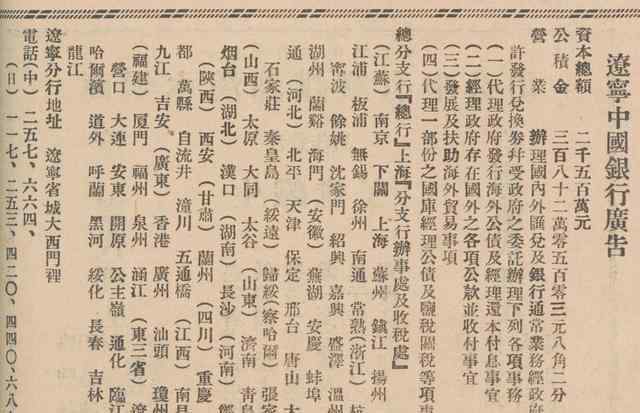 遼寧中國銀行廣告
資本總額　二千五百萬元
公積金　三百八十二萬零五百零三元八角二分
營業　辦理國內外匯兌及銀行通常業務經政府
許發行兌換劵幷受政府之委託辦理下列各項事務
(一)代理政府發行海外公債及經理還本付息事宜
(二)經理政府存在國外之各項公款並收付事宜
(三)發展及扶助海外貿易事項
(四)代理一部份之國庫經理公債及鹽稅關稅等項事
總分支行『總行』上海『分支行辦事處及收稅處』
(江蘇)南京　下關　上海　蘇州　鎭江　揚州
江浦　板浦　無錫　徐州　南通　常熟(浙江)杭
甯波　餘姚　沈家門　紹興　嘉興　盛澤　溫州
湖州　蘭谿　海門　(安徽)蕪湖　安慶　蚌埠
通　(河北)北平　天津　保定　邢台　唐山
石家莊　秦皇島　(綏遠)歸綏(察哈爾)張家
(山西)太原　大同　太谷　(山東)濟南　靑島
烟台　(湖北)漢口　(湖南)長沙　(河南)鄭
(陝西)西安　(甘肅)蘭州　(四川)重慶
都　萬縣　自流井　潼川　五通橋　(江西)南昌
九江　吉安　(廣東)香港　廣州　汕頭　瓊州
(福建)厦門　福州　泉州　涵江　(東三省)遼
營口　大連　安東　開原　公主嶺　通化　臨江
哈爾濱　道外　呼蘭　黑河　綏化　長春　吉林
龍江
遼寧分行地址　遼寧省城大西門裡
電話(中)二五七、六六四、
(日)一一七、二五三、四二〇、四四〇、六八